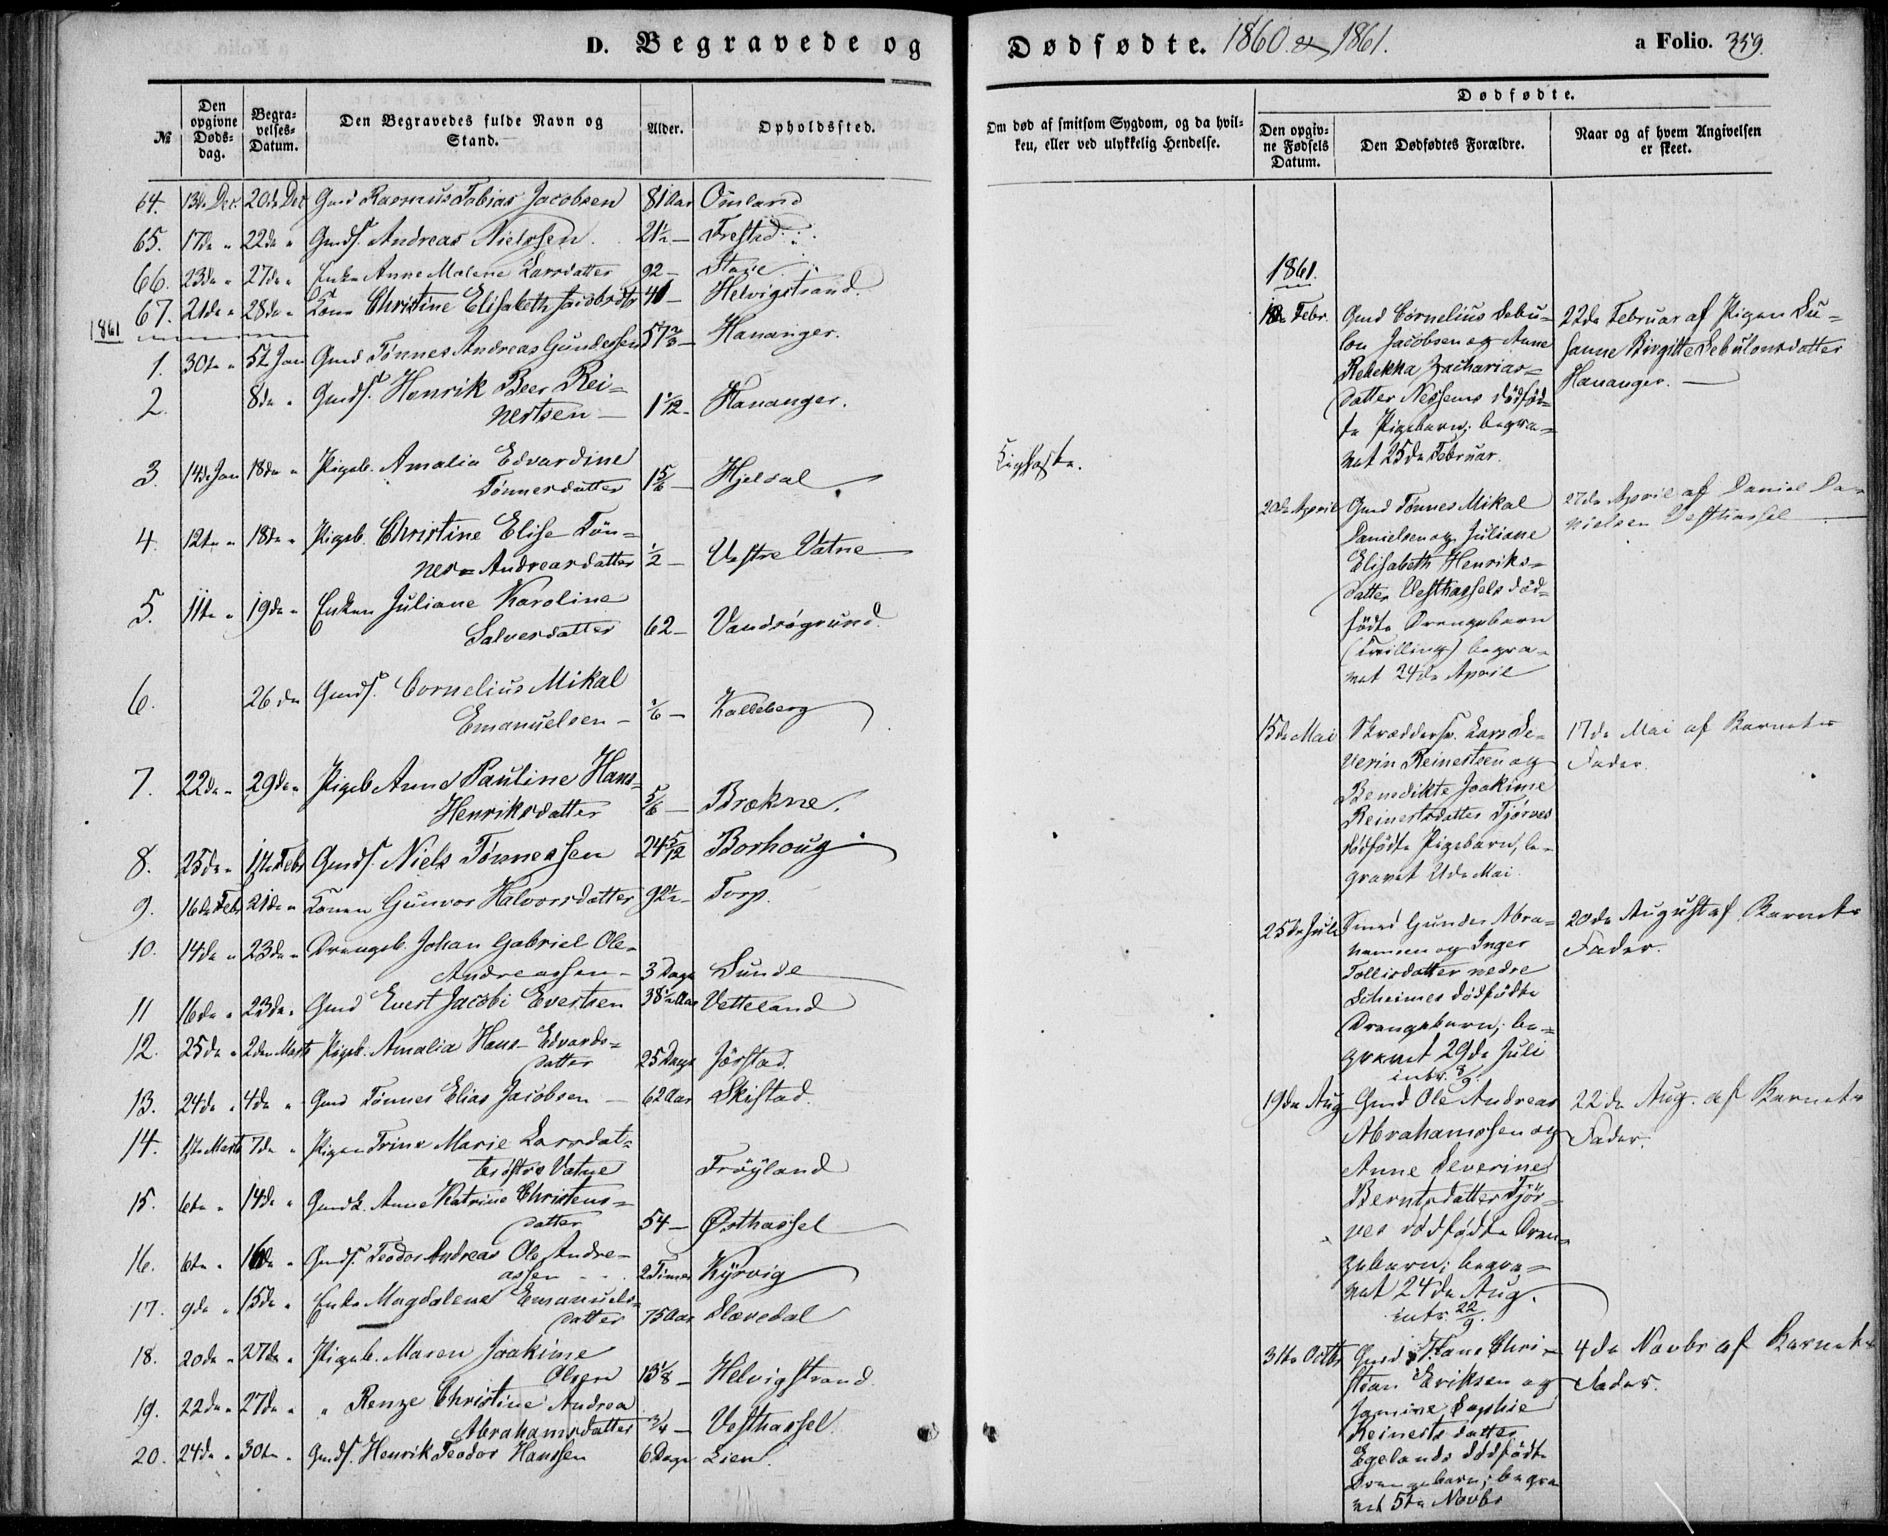 D. Begravede og
Dødfødte. 1860 & 1861.
a Folio. 359.
№
Den opgivne Døds-dag.
Begra-velses-Datum.
Den Begravedes fulde Navn og Stand.
Alder.
Opholdssted.
Om død af smitsom Sygdom, og da hvil-
ken, eller ved ulykkelig Hendelse.
Dødfødte.
Den opgiv-ne Fødsels Datum.
Den Dødfødtes Forældre.
Naar og af hvem Angivelsen er skeet.
64. 13de Dec. 20de Dec Gmd Rasmus Tobias Jacobsen 81 Aar Omland
65. 17de " 22de " Gmds. Andreas Nielssen 2½ — Frestad
66. 23de " 27de " Enke Anne Malene Larsdatter 92 — Stave
67. 21de " 28de " Kone Christine Elisabeth Jacobsdtr 41 — Helvigstrand.
1861
1. 30te " 5te Jan Gmd Tønnes Andreas Gundersen 57⅔ — Hananger.
2. 8de " Gmds. Henrik Beer Rei=
nertsen — 1 1/12 — Hananger.
3. 14de Jan 18de " Pigeb. Amalia Edvardine
Tønnesdatter 1 5/6 — Hjelsal
4. 12te " 18de " Pigeb. Christine Elise Tøn=
nes=Andreasdatter ½ — Vestre Vatne
5. 11te " 19de " Enken Juliane Karoline
Salvesdatter 62 — Vandrøgrund.
6. 26de Gmds. Cornelius Mikal
Emanuelsen — 1/6 — Kalleberg
7. 22de " 29de " Pigeb Anne Pauline Hans=
Henriksdatter 5/6 — Brækne.
8. 25de " 1ste Febr Gmds. Niels Tønnessen 24 5/12 Borhoug
9. 16de Febr 21de " Konen Gunvor Halvorsdatter 92½ — Torp.
10. 14de " 23de " Drengeb. Johan Gabriel Ole=
Andreassen — 3 Dage Sunde
11 16de " 23de " Gmd Evert Jacobi Evertsen 38½ Aar Vetteland
12. 25de " 2den Marts Pigeb. Amalia Hans=Edvards=
datter 25 Dage Jørstad.
13. 24de " 4de " Gmd Tønnes Elias Jacobsen — 62 Aar Skistad.
14. 1ste Marts 7de " Pigen Trine Marie Larsdat=
ter østre Vatne Frøyland
15. 6te " 14de " Gmdk. Anne Katrine Christens=
datter 54 — Østhassel
16. 6te " 16de " Gmds. Teodor Andreas Ole Andre=
assen 2 Timer Kyrvig
17. 9de " 15de " Enke Magdalene Emanuels=
datter 75 Aar Slævedal
18. 20de " 27de " Pigeb. Maren Joakime
Olsen 13⅛ — Helvigstrand
19. 22de " 27de " " Renze Christine Andrea
Abrahamsdatter ¾ — Vesthassel.
20. 24de " 30te " Gmds. Henrik Teodor Hanssen 6 Dage Lien.
Kighoste.
1861.
18de Febr. Gmd Cornelius Sebu=
lon Jacobsen og Anne
Rebekka Zacharias=
datter Nessems dødfød=
te Pigebarn; begra=
vet 25de Februar.
22de Februar af Pigen Su=
sanne Birgitte Sebulonsdatter
Hananger. —
20de April Gmd Tønnes Mikal
Danielsen og Juliane
Elisabeth Henriks=
datter Vesthassels død=
fødte Drengebarn
(Tvilling) begra=
vet 24de April
27de April af Daniel Da=
nielsen Vesthassel
15de Mai Skræddersv. Lars Se=
verin Reinertsen og
Benedikte Joakime
Reinertsdatter Tjørves
dødfødte Pigebarn, be=
gravet 21de Mai.
17de Mai af Barnets
Fader.
25de Juli Smed Gunder Abra=
hamsen og Inger
Tollisdatter nedre
Scheimes dødfødte
Drengebarn; be=
gravet 29de Juli
intr. 8/9.
20de August af Barnets
Fader.
19de Aug Gmd Ole Andreas
Abrahamssen og
Anne Severine
Berntsdatter Tjør=
ves dødfødte Dren=
gebarn; begra=
vet 24de Aug.
intr. 22/9.
22de Aug. af Barnets
Fader.
31te Octbr Gmd Hans Chri=
stian Eriksen og
Jamine Sophie
Reinertsdatter
Egelands dødfødte
Drengebarn; begra
vet 5te Novbr
4de Novbr af Barnets
Fader.